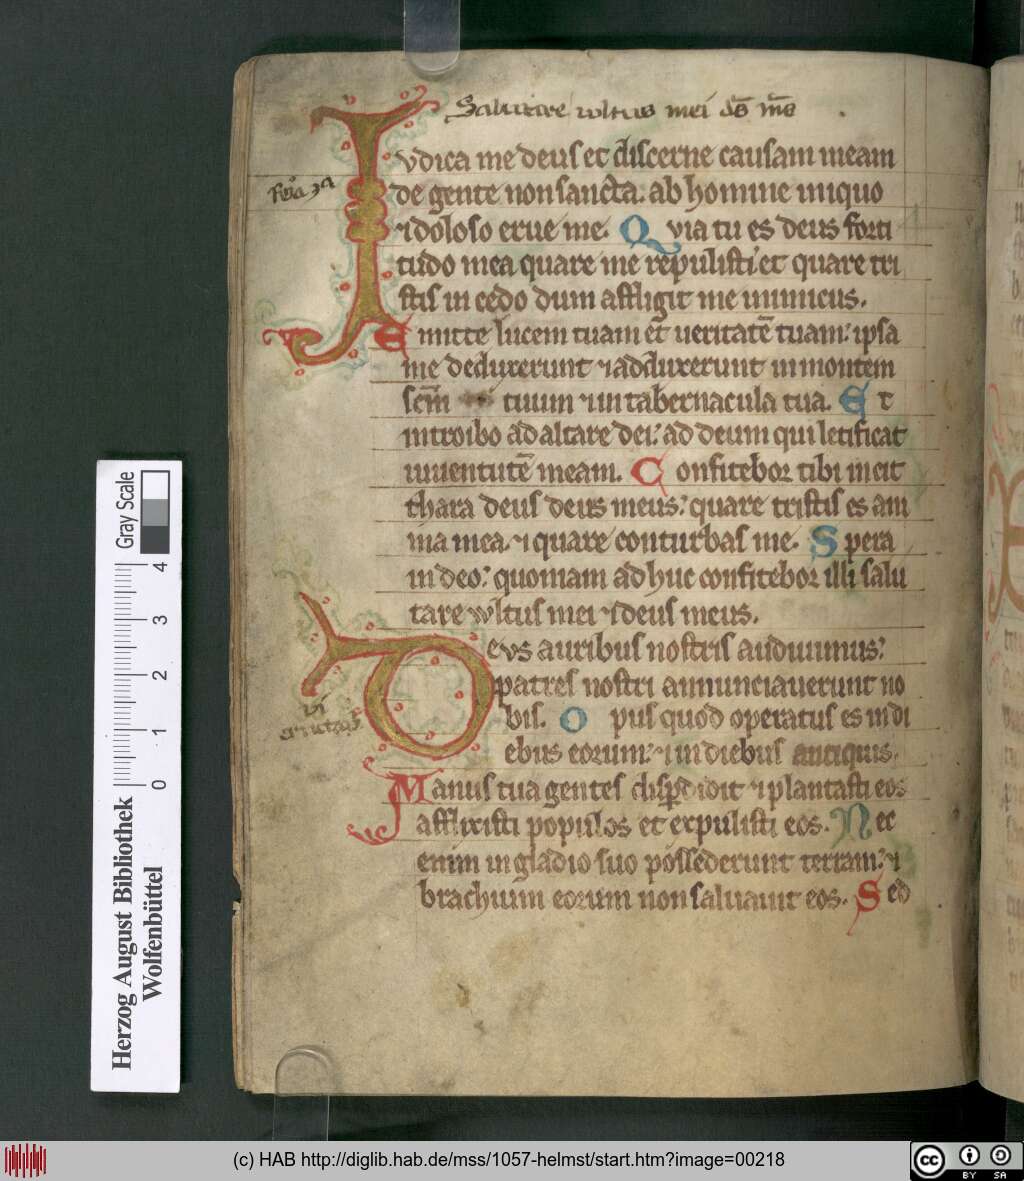 Salutare vultus mei ds ms
Iudica me deus et discerne causam meam
feria 3a
de gente non sancta. ab homine iniquo
⁊ doloso erue me. Quia tu es deus forti
tudo mea quare me repulisti et quare tri
stis incedo dum affligit me inimicus.
Emitte lucem tuam et ueritatē tuam: ipsa
me deduxerunt ⁊ adduxerunt in montem
scm̄ tuum ⁊ in tabernacula tua. Et
introibo ad altare dei: ad deum qui letificat
iuuentutē meam. Confitebor tibi in cit
thara deus deus meus: quare tristis es ani
ma mea. ⁊ quare conturbas me. Spera
in deo: quoniam adhuc confitebor illi salu
tare vvltus mei ⁊ deus meus.
Devs auribus nostris audiuimus:
patres nostri annunciauerunt no
bis. Opus quod operatus es in di
ebus eorum: ⁊ in diebus antiquis.
Manus tua gentes disꝑdidit ⁊ plantasti eos
afflixisti populos et expulisti eos. Nec
enim in gladio suo possederunt terram: ⁊
brachium eorum non saluauit eos. Sed
Herzog August Bibliothek
Wolfenbüttel
Gray Scale
0 1 2 3 4
(c) HAB http://diglib.hab.de/mss/1057-helmst/start.htm?image=00218
cc BY SA